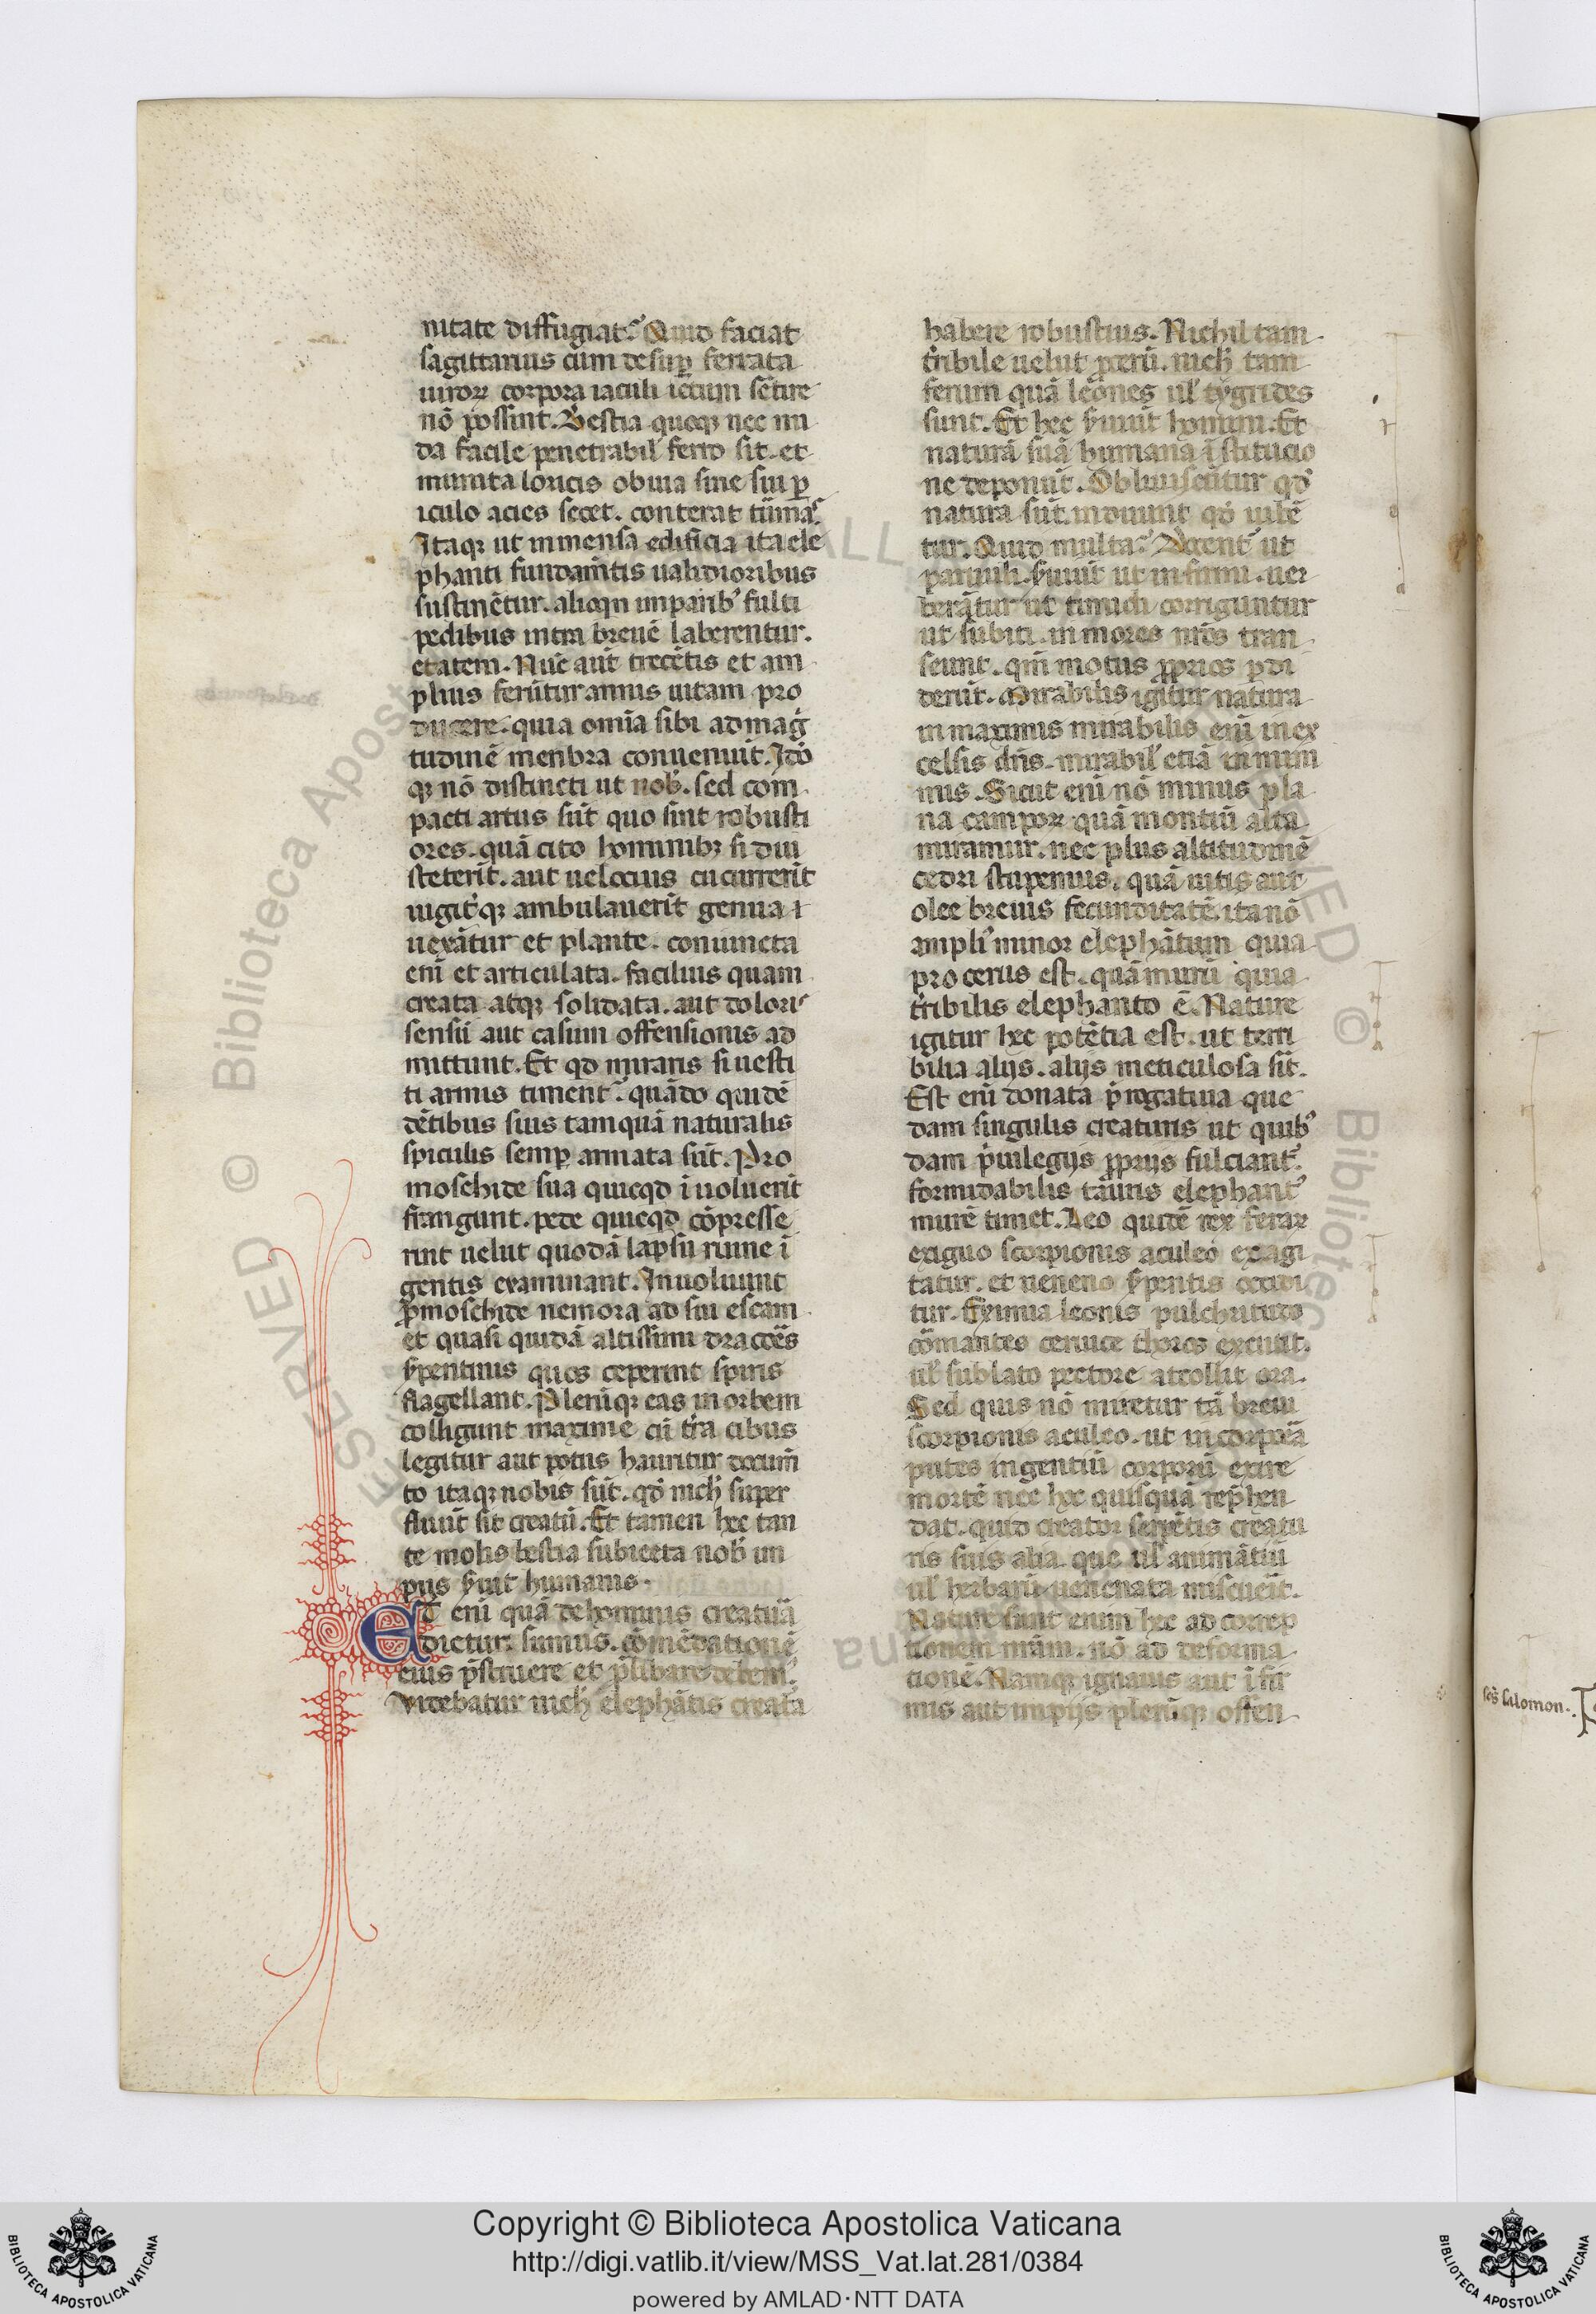 nitate diffugiat? Quid faciat
sagittarius cum desuꝑ ferrata
uiroꝝ corpora iaculi ictum sẽtire
nõ possint. Bestia queqꝫ nec nu
da facile penetrabil̛ ferro sit. et
munita loricis obuia sine sui ꝑ
iculo acies secet. conterat
Itaqꝫ ut inmensa edificia ita ele
phanti fundam̃tis ualidioribus
sustinẽtur. alioqn imparibꝰ fulti
pedibus intra breuẽ laberentur.
etatem. Nũc aũt trecẽtis et am
plius ferũtur annis uitam pro
ducere. quia omĩa sibi ad mag̃
tudinẽ menbra conuenĩut. Idõ
qꝫ nõ distincti ut nob̛. sed com
pacti artus sũt quo sint robusti
ores. quã cito hominibꝫ si diu
steterĩt. aut uelocius cucurrerĩt
iugitꝰqꝫ ambulauerĩt genua ĩ
uexãtur et plante. coniuncta
enĩ et articulata. facilius quam
creata atqꝫ solidata. aut doloris
sensũ aut casum offensionis ad
mittunt. Et qd miraris si uesti
ti armis timentꝰ. quãdo quidẽ
dẽtibus suis tamquã naturalis
spiculis semꝑ armata sũt. Pro
moschide sua quicqd ĩ uoluerĩt
frangunt. pede quicqd cõpresse
rint uelut quodã lapsu ruine ĩ
gentis examinant. Inuoluunt
ꝓmoschide nemora ad sui escam
et quasi quidã altissimi dracões
sꝰpentinis quos ceperint spiris
flagellant. Plerũqꝫ eas in orbem
colligunt maxime cũ tꝰra cibus
legitur aut potus hauritur docum̃
to itaqꝫ nobis sũt. qd̛ nich̛ super
fluũt sit creatũ. Et tamen hec tan
te molis bestia subiecta nob̛ im
ꝑiis sꝰuit humanis.
ET enĩ quã de hominis creatuã
dictur. sumus. cõmẽdationẽ
eius p̃struere et p̃libare debemꝰ.
Videbatur nich̛ elephãtis creatꝰa
habere robustius. Nichil tam
tꝰribile uelut nich̛ tam
ferum quã leões ul̛ tygrides
sunt. Et hec sꝰuiũt homini. Et
naturã suã humana ĩstitucio
ne deponũt. Obliuiscũtur qd̛
natura sũt. induunt qd̛ iubẽ
tur. Quid multa? Docentꝰ ut
paruuli. sꝰuiũt ut infirmi. uer
berãtur ut timidi corriguntur
ut subiti. in mores nr̃os tran
seunt. qm̃ motus ꝓprios ꝑdi
derũt. Mirabilis igitur natura
in maximis mirabilis enĩ in ex
celsis dñs. mirabil̛ etiã in mini
mis. Sicut enĩ nõ minus pla
na campoꝝ quã montiũ alta
miramur. nec plus altitudinẽ
cedri stupemus. quã uitis aut
olee breuis fecunditatẽ. ita nõ
ampliꝰ miror elephãtum quia
procerus est. quã murũ quia
tꝰribilis elephanto ẽ. Nature
igitur hec potẽtia est. ut terri
bilia alijs. alijs meticulosa sĩt.
Est enĩ donata p̃rogatiua que
dam singulis creaturis ut quibꝰ
dam p̃uilegijs ꝓprijs fulciantꝰ.
formidabilis tauris elephantꝰ
murẽ timet. Leo quidẽ rex feraꝝ
exiguo scorpionis aculeo exagi
tatur. et ueneno sꝰpentis occidi
tur. Eximia leonis pulchritudo
cõmantes ceruice thoros excutit.
ul̛ sublato pectore attollit ora.
Sed quis nõ miretur tã breui
scorpionis aculeo. ut incorporeã
putes ingentiũ corporũ exire
mortẽ nec hec quisquã rep̃hen
dat. quid creator serpẽtis creatu
ris suis alia. que ul̛ animãtiũ
ul̛ herbarũ uenenata miscuerĩt.
Nature sunt enim hec ad correp
tionem nr̃am. nõ ad deforma
cionẽ. Namqꝫ ignauis aut ĩfir
mis aut impijs plerũqꝫ offen
salomon.
Copyright © Biblioteca Apostolica Vaticana
http://digi.vatlib.it/view/MSS_Vat.lat.281/0384
powered by AMLAD·NTT DATA